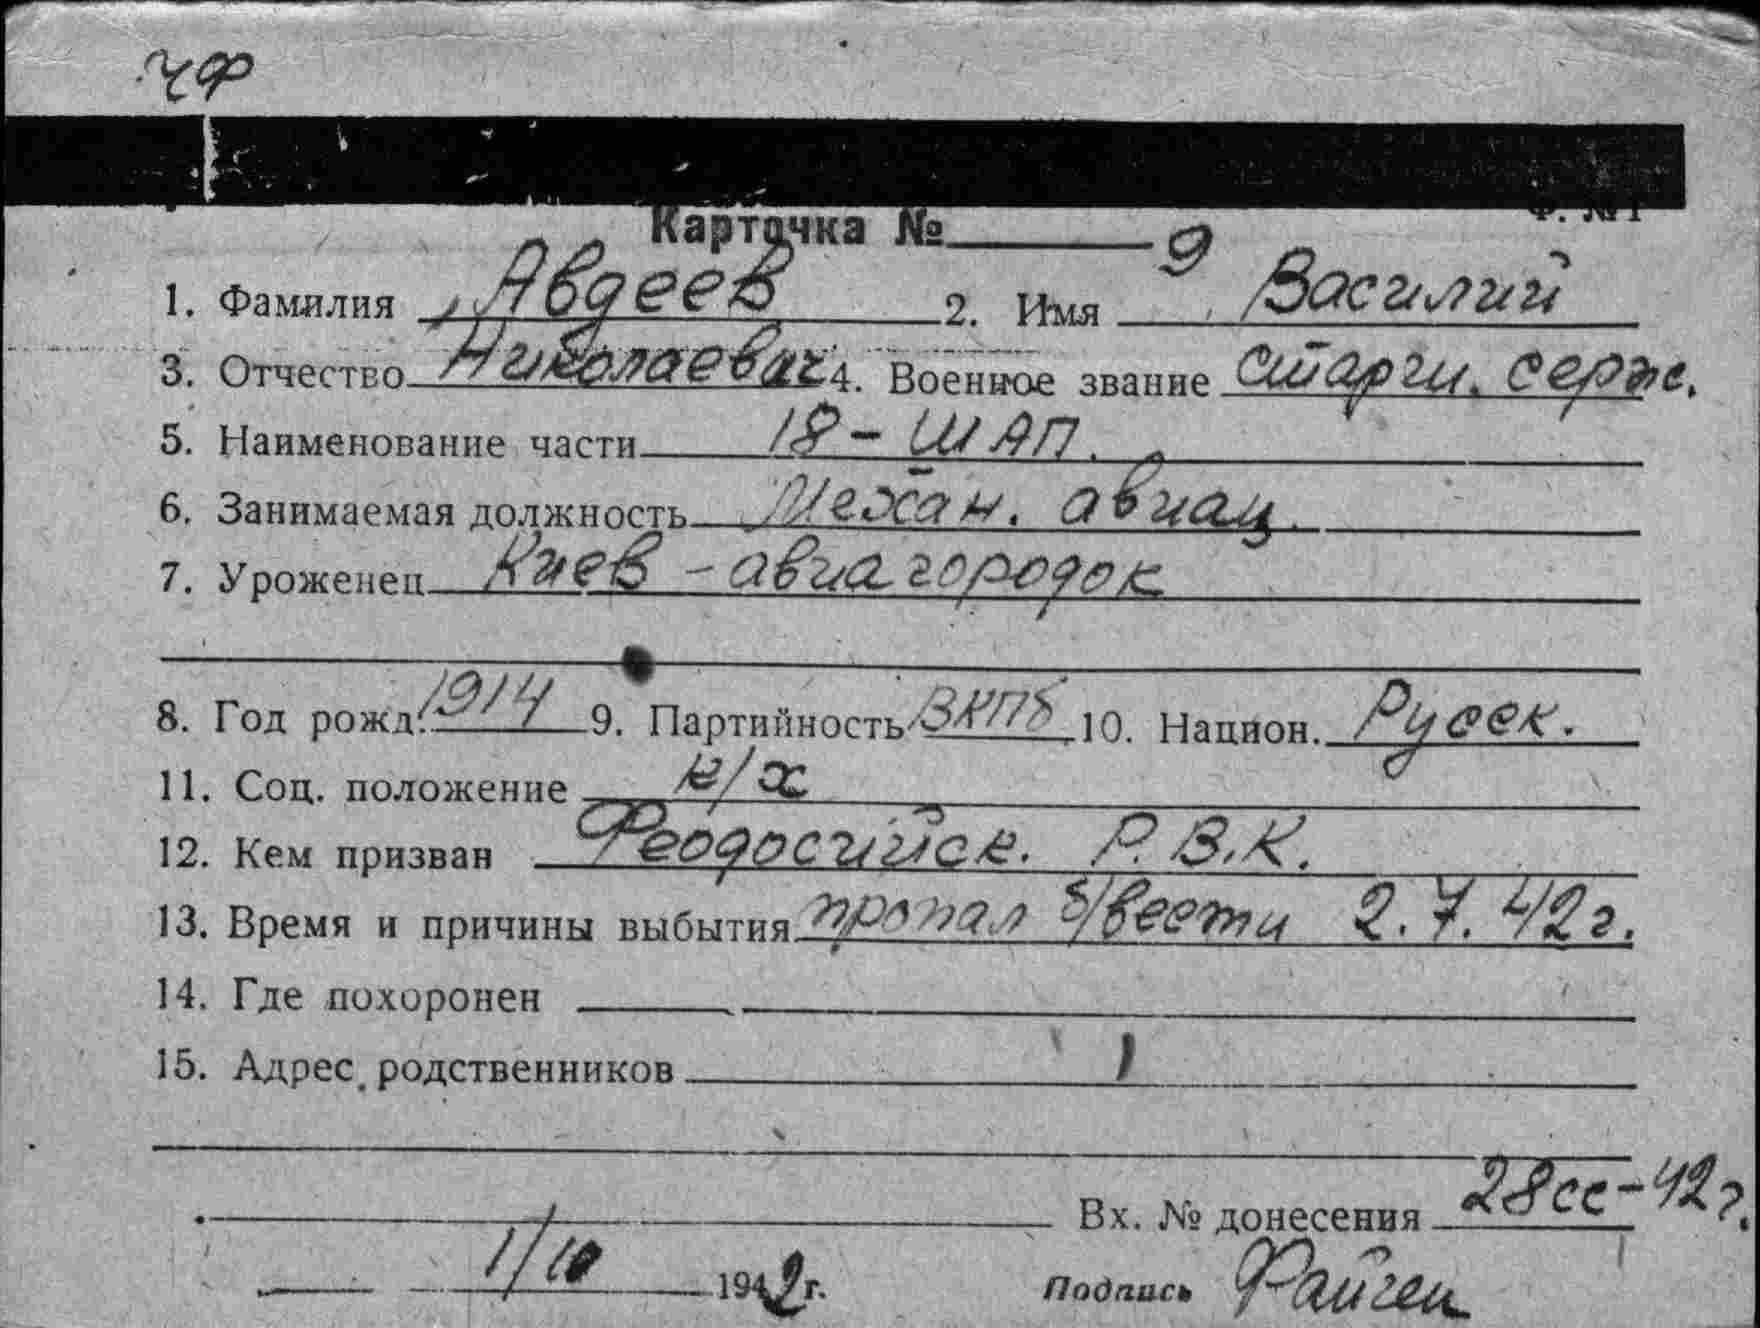 ЧФ
Ф. №1
Карточка № 9
1. Фамилия Авдеев 2. Имя Василий
3. Отчество Николаевич 4. Военное звание старш. серж.
5. Наименование части 18-ШАП.
6. Занимаемая должность Механ. авиац.
7. Уроженец Киев - авиагородок
8. Год рожд. 1914 9. Партийность ВКПб 10. Национ. Русск.
11. Соц. положение к/х
12. Кем призван Феодосийск. Р.В.К.
13. Время и причины выбытия пропал б/вести 2.7.42г.
14. Где похоронен
15. Адрес родственников
Вх. № донесения 28сс-42г.
1/10 1942г. Подпись